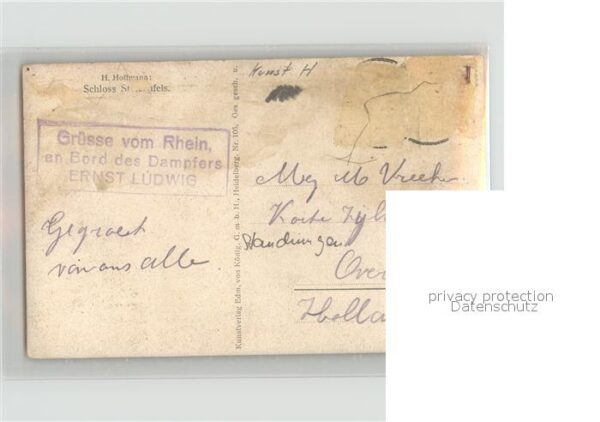 H. Hoffmann:
Schloss
Grüsse vom Rhein,
an Bord des Dampfers
ERNST LUDWIG
Gegroet
van ons alle
Kunstverlag Edm. von König, G. m. b. H., Heidelberg. Nr. 103. Ges. gesch. u.
Kunst H
Mej M
Korte
Over
Holla
privacy protection
Datenschutz